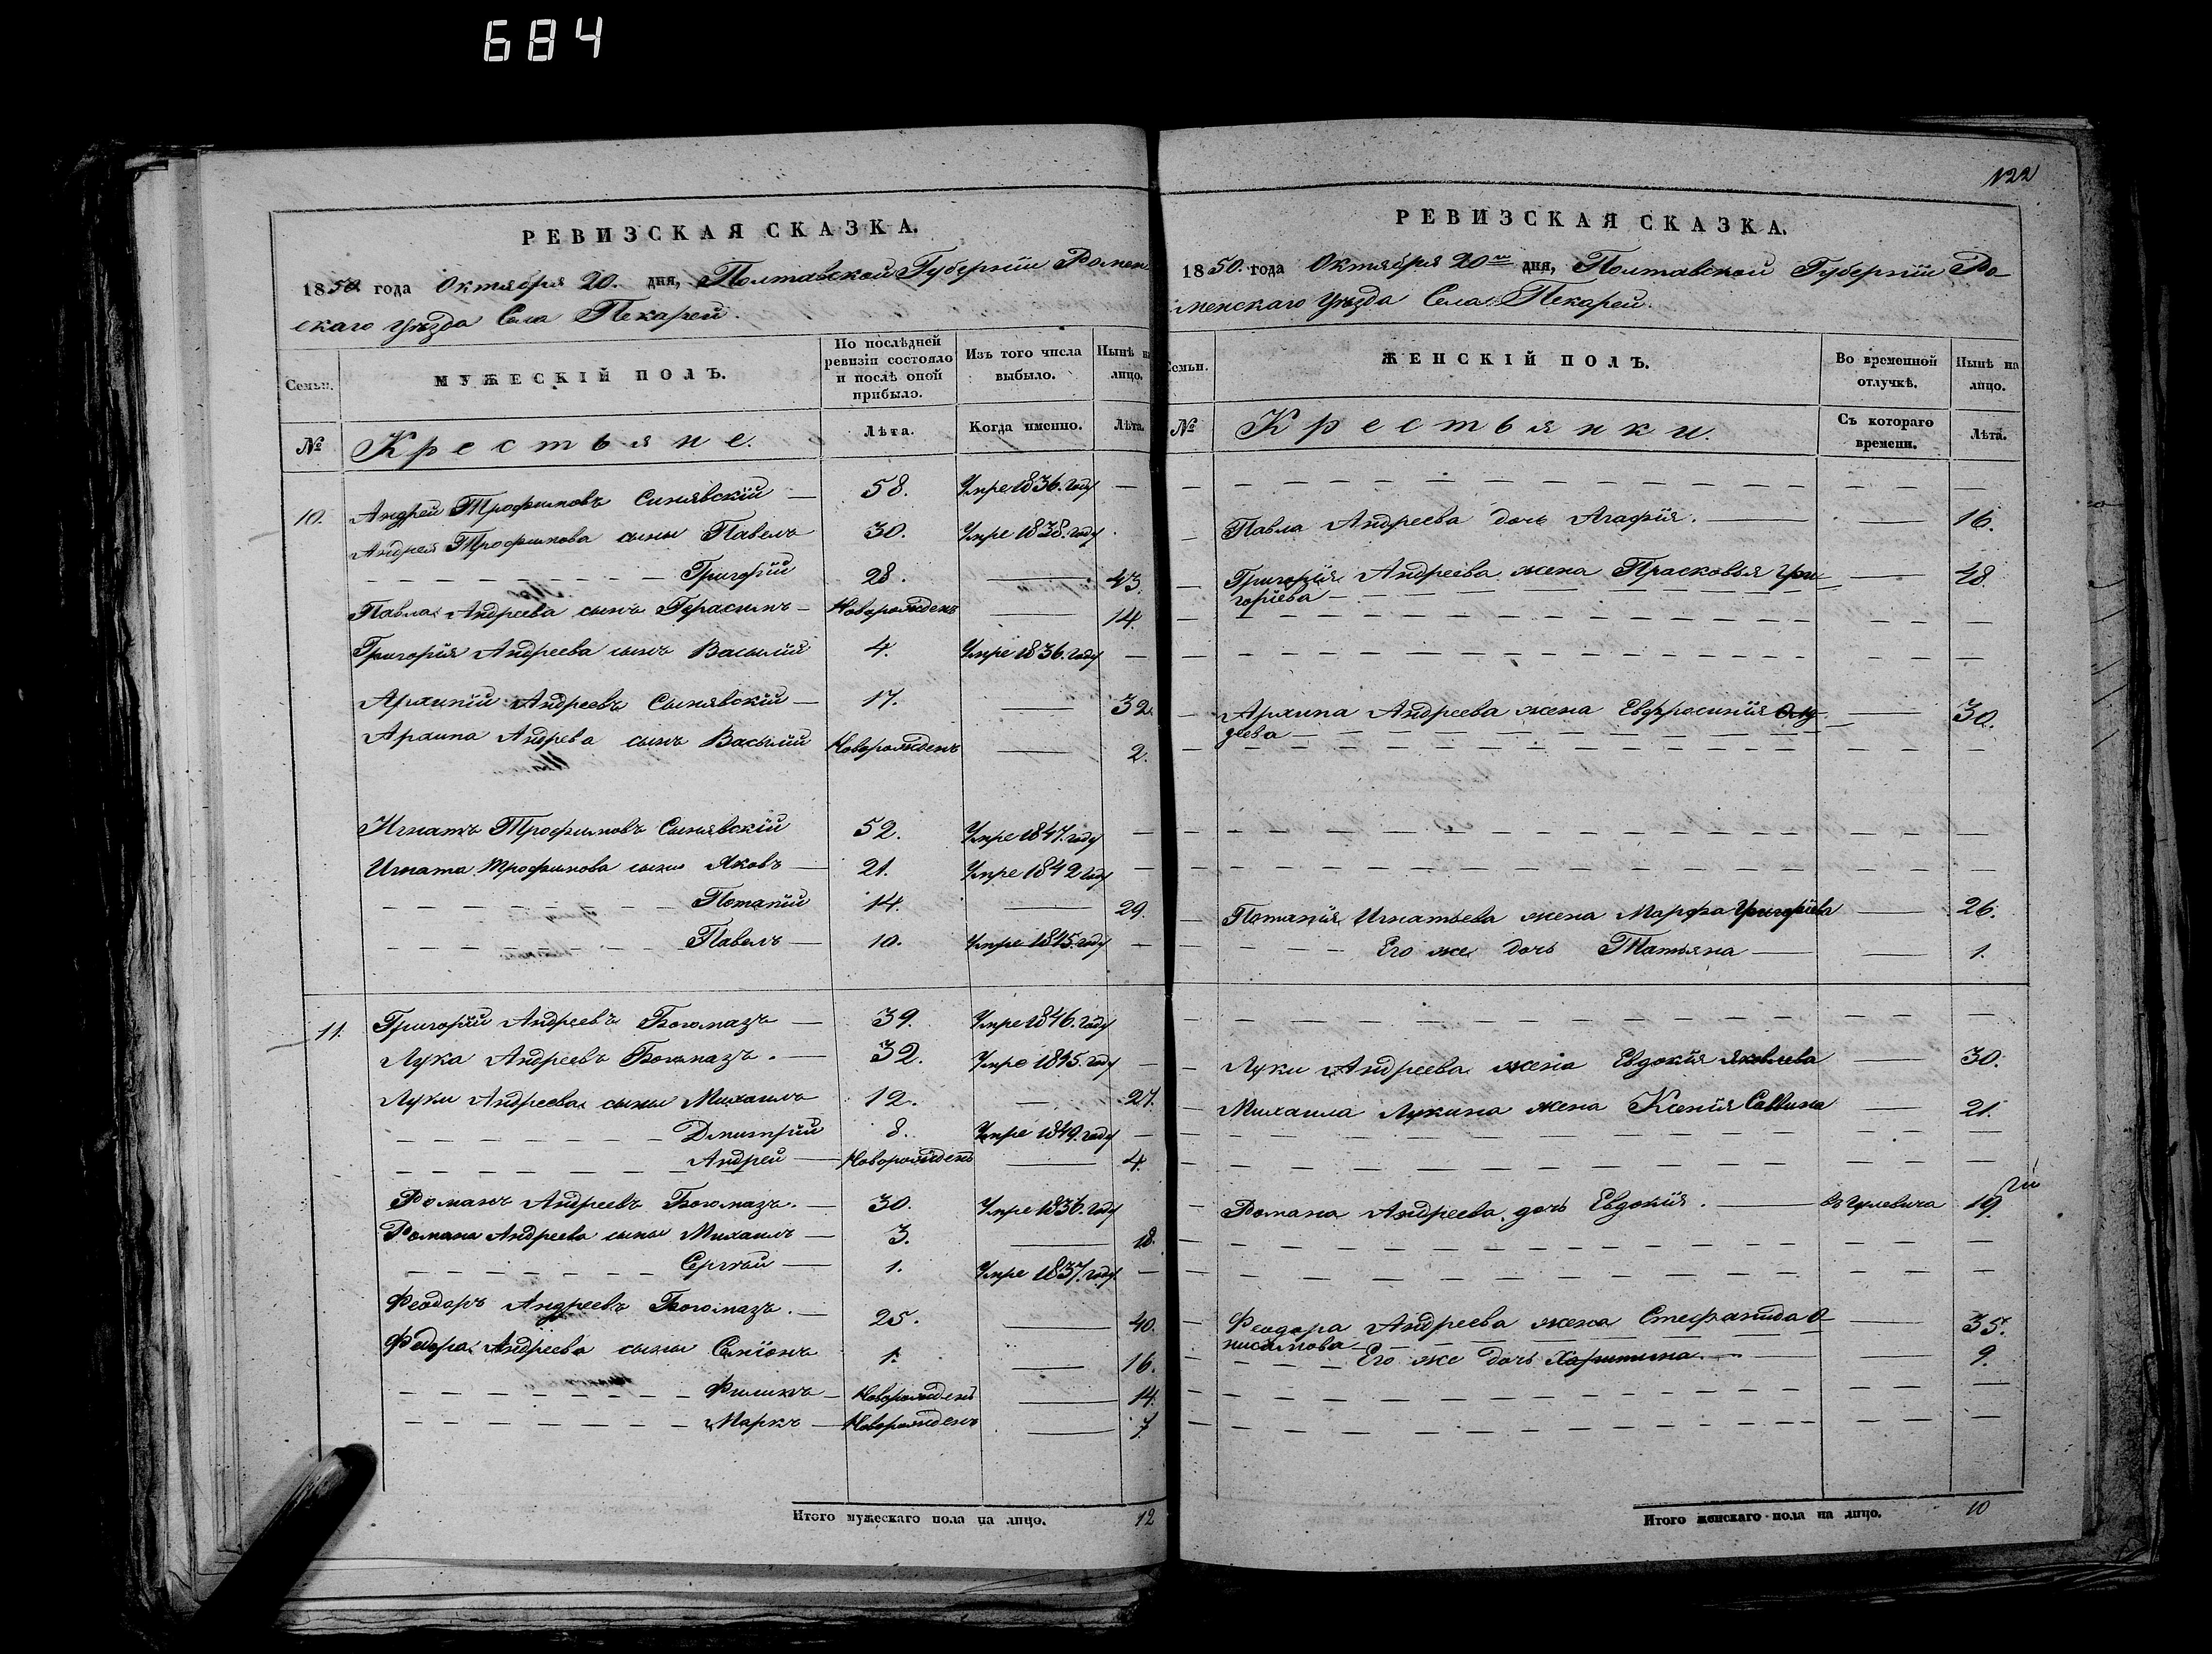 684
РЕВИЗСКАЯ СКАЗКА.
1850 года Октября 20. дня, Полтавской Губерніи Ромен
скаго уѣзда Села Пекарей.
Семьи.
МУЖЕСКІЙ ПОЛЪ.
По послѣдней ревизіи состояло и послѣ оной прибыло.
Изъ того числа выбыло.
Нынѣ на лицо.
№
Крестьяне.
Лѣта.
Когда именно.
Лѣта.
10. Андрей Трофимовъ Синявскій — 58. Умре 1836. году —
Андрея Трофимова сыны Павелъ 30. Умре 1838. году
Григорій 28. — 43.
Павла Андреева сынъ Герасимъ — Новорожденъ — 14.
Григорія Андреева сынъ Василій 4. Умре 1836. году —
Архипій Андреевъ Сынявскій — 17. — 32.
Архипа Андрева сынъ Василій Новорожденъ — 2.
Игнатъ Трофимовъ Сынявскій 52. Умре 1847. году —
Игната Трофимова сыны Яковъ — 21. Умре 1842 году —
Потапій 14. — 29.
Павелъ — 10. Умре 1845. году —
11. Григорій Андреевъ Богомазъ — 39. Умре 1846. году
Лука Андреевъ Богомазъ. — 32. Умре 1845. году —
Луки Андреева сыны Михаилъ 12. — 27.
Дмитрій 8. Умре 1849. году —
Андрей — Новорожденъ — 4.
Романъ Андреевъ Богомазъ. — 30. Умре 1836. году
Романа Андреева сыны Михаилъ — 3. — 18.
Сергѣй — 1. Умре 1837. году —
Феодоръ Андреевъ Богомазъ. — 25. — 40.
Федора Андреева сыны Семіонъ 1. — 16.
Филипъ — Новорожденъ — 14.
Маркъ — Новорожденъ — 7.
Итого мужескаго пола на лицо. 12
122
РЕВИЗСКАЯ СКАЗКА.
1850. года Октября 20го дня, Полтавской Губерніи Ро-
менскаго уѣзда Села Пекарей.
Семьи.
ЖЕНСКІЙ ПОЛЪ.
Во временной отлучкѣ.
Нынѣ на лицо.
№
Крестьянки.
Съ котораго времени.
Лѣта.
Павла Андреева дочь Агафія. — — 16.
Григорія Андреева жена Прасковья Гри — 48
горіева
Архипа Андреева жена Евфросинія — 30.
Потапія Игнатьева жена Марфа Григоріева — 26.
Его же дочь Татьяна — — 1.
Луки Андреева жена Евдокія Яковлева — 30.
Михаила Лукина жена Ксенія Саввина — 21.
Романа Андреева дочь Евдокія. — 19
Феодора Андреева жена Стефанида О — 35.
нисимова
Его же дочь Харитина. — 9.
Итого женскаго пола на лицо. 10